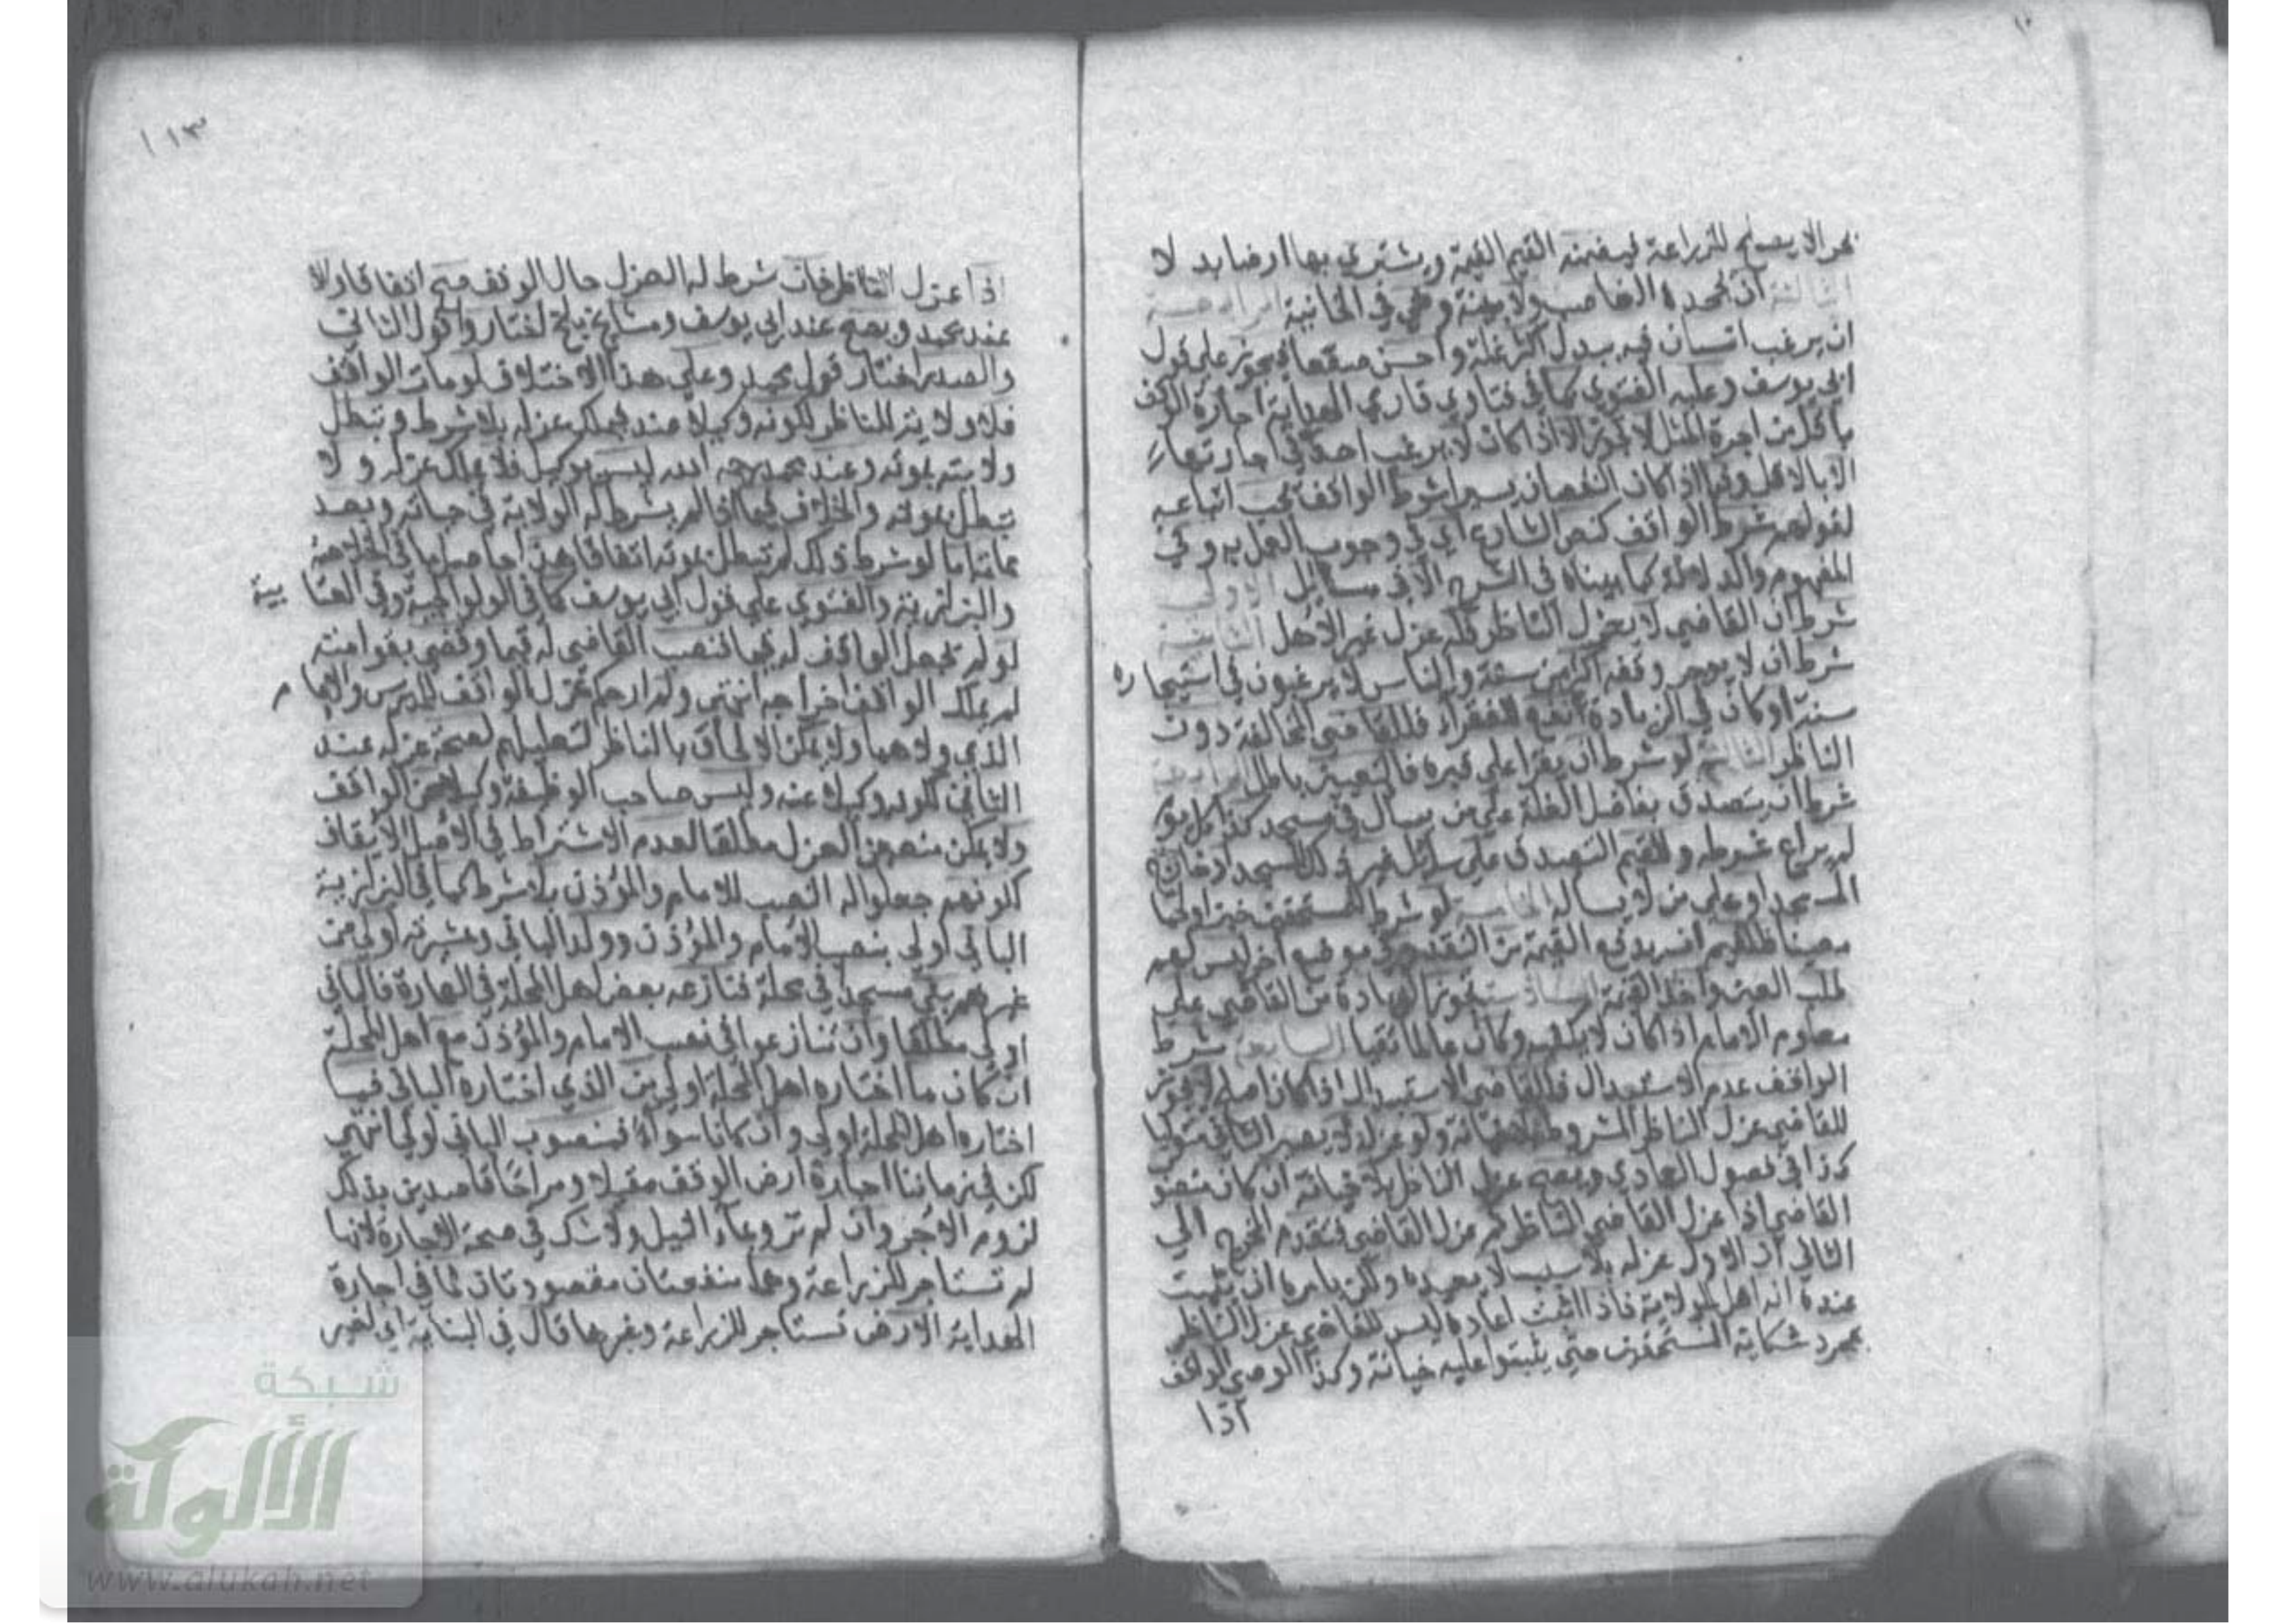 بحرا لا يصلح للزراعة فيضمنه القيم القيمة ويشتري بها ارضا بدلا
الثالثة ان يجحده الغاصب ولا بينة وهي في الخانية الرابعة
ان يرغب انسان فيه ببدل اكثر غلة واحسن صقعا فيجوز على قول
ابي يوسف وعليه الفتوى كما في فتاوي قاري الهداية اجارة الوقف
باقل من اجرة المثل لا تجوز الا اذا كان لا يرغب احد في اجارتها
الا بالاقل وفيما اذا كان النقصان يسيرا شرط الواقف يجب اتباعه
لقولهم شرط الواقف كنص الشارع اي في وجوب العمل به وفي
المفهوم والدلالة كما بيناه في الشرح الا في مسائل الاولى
شرط ان القاضي لا يعزل الناظر فله عزل غير الاهل الثانية
شرط ان لا يوجر وقفه اكثر من سنة والناس لا يرغبون في استيجاره
سنة او كان في الزيادة انفع للفقراء فللقاضي المخالفة دون
الناظر الثالثة لو شرط ان يقرا على قبره فالتعيين باطل الرابعة
شرط ان يتصدق بفاضل الغلة على من يسال في مسجد كذا كل يوم
لم يراع شرطه وللقيم التصدق على سائل غير ذلك المسجد او خارج
المسجد او على من لا يسال الخامسة لو شرط للمستحقين خبزا ولحما
معينا فللقيم ان يدفع القيمة من النقد وفي موضع اخر ليس لهم
طلب العين واخذ القيمة السادسة تجوز الزيادة من القاضي على
معلوم الامام اذا كان لا يكفيه وكان عالما تقيا السابعة شرط
الواقف عدم الاستبدال فللقاضي الاستبدال اذا كان اصلح لا يجوز
للقاضي عزل الناظر المشروط له بلا خيانة ولو عزله لا يصير الثاني متوليا
كذا في فصول العمادي ويصح عزل الناظر بلا خيانة ان كان منصوب
القاضي اذا عزل القاضي الناظر ثم عزل القاضي فتقدم المخرج الى
الثاني ان الاول عزله بلا سبب لا يعيده ولكن يامره ان يثبت
عنده انه اهل للولاية فاذا اثبت اعاده ليس للقاضي عزل الناظر
بمجرد شكاية المستحقين حتى يثبتوا عليه خيانة وكذا الوصي الواقف
اذا
١١٣
اذا عزل الناظر فان شرط له العزل حال الوقف صح اتفاقا والا لا
عند محمد ويصح عند ابي يوسف ومشايخ بلخ اختاروا قول الثاني
والصدر اختار قول محمد وعلى هذا الاختلاف لو مات الواقف
فلا ولاية للناظر لكونه وكيلا عنه فيملك عزله بلا شرط وتبطل
ولايته بموته وعند محمد رحمه الله ليس بوكيل فلا يملك عزله ولا
تبطل بموته والخلاف فيما اذا لم يشرط له الولاية في حياته وبعد
مماته اما لو شرط ذلك لم تبطل بموته اتفاقا هذا حاصل ما في الخلاصة
والبزازية والفتوى على قول ابي يوسف كما في الولوالجية وفي العتابية
لو لم يجعل الواقف له قيما فنصب القاضي له قيما وقضى بقوامته
لم يملك الواقف اخراجه انتهى ولم ار حكم عزل الواقف للمدرس والامام
الذي ولاهما ولا يمكن الالحاق بالناظر لتعليلهم لصحة عزله عند
الثاني لكونه وكيلا عنه وليس صاحب الوظيفة وكيلا عن الواقف
ولا يمكن منعه عن العزل مطلقا لعدم الاشتراط في الاصل الايقاف
لكونهم جعلوا له النصب للامام والموذن بلا شرط كما في البزازية
الباني اولى بنصب الامام والموذن وولد الباني وعشيرته اولى من
غيرهم بنى مسجدا في محلة فنازعه بعض اهل المحلة في العمارة فالباني
اولى مطلقا وان تنازعوا في نصب الامام والموذن مع اهل المحلة
ان كان ما اختاره اهل المحلة اولى من الذي اختاره الباني فما
اختاره اهل المحلة اولى وان كانا سواء فمنصوب الباني اولى انتهى
لكن في زماننا اجارة ارض الوقف مقيلا ومراحا قاصدين بذلك
لزوم الاجر وان لم ترو بماء النيل ولا شك في صحة الاجارة لانها
لم تستاجر للزراعة وهما منفعتان مقصودتان كما في اجارة
الهداية الارض تستاجر للزراعة وغيرها قال في البناية اي لغير
شبكة
الألوكة
www.alukah.net